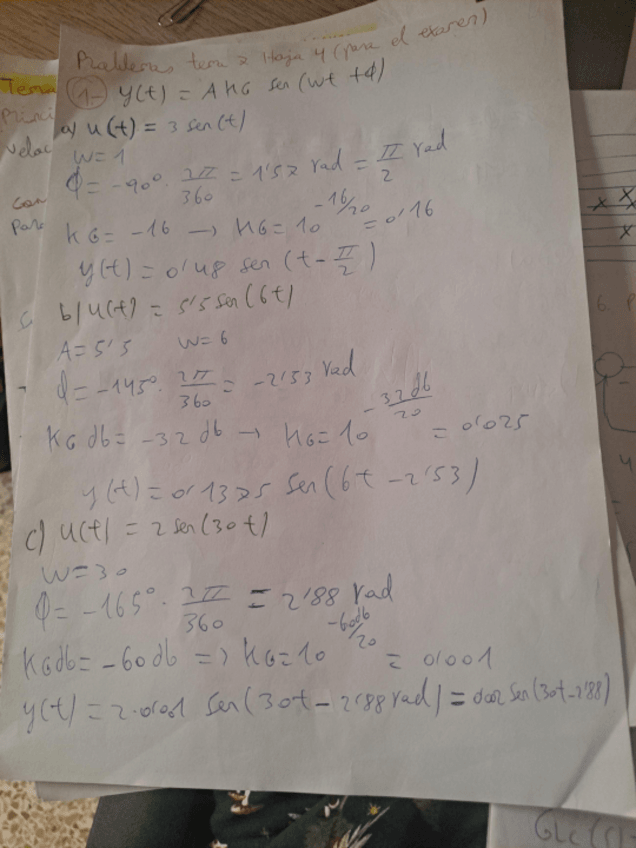 Problemas tema 2 Hoja 4 (para el examen)
1- y(t) = A KG sen (wt + φ)
a) u(t) = 3 sen(t)
w = 1
φ = -90° · 2π/360 = 1'57 rad = π/2 rad
KG = -16 → KG = 10^(-16/20) = 0'16
y(t) = 0'48 sen (t - π/2)
b) u(t) = 5'5 sen(6t)
A = 5'5 w = 6
φ = -145° · 2π/360 = -2'53 rad
KG db = -32 db → KG = 10^(-32 db/20) = 0'025
y(t) = 0'1375 sen(6t - 2'53)
c) u(t) = 2 sen(30t)
w = 30
φ = -165° · 2π/360 = 2'88 rad
KG db = -60 db => KG = 10^(-60db/20) = 0'001
y(t) = 2·0'001 sen(30t - 2'88 rad) = 0'002 sen(30t - 2'88)
Tema
Princi
veloc
con
Para
x x
x
6.
GLC(s) =